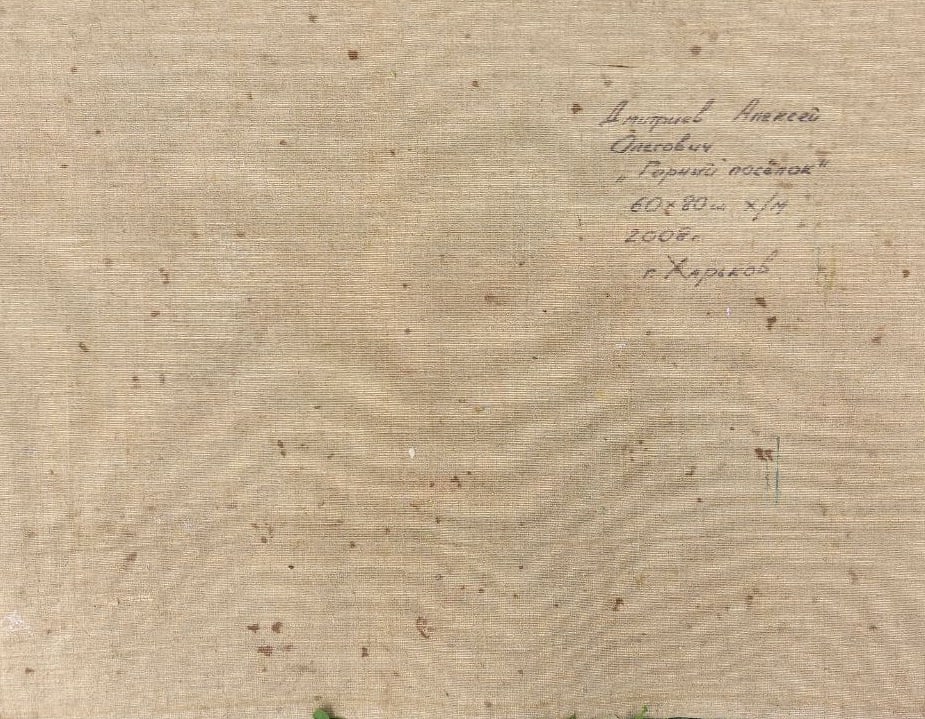 Дмитриев Алексей
Олегович
„Горный посёлок"
60х80см х/м
2008г.
г. Харьков